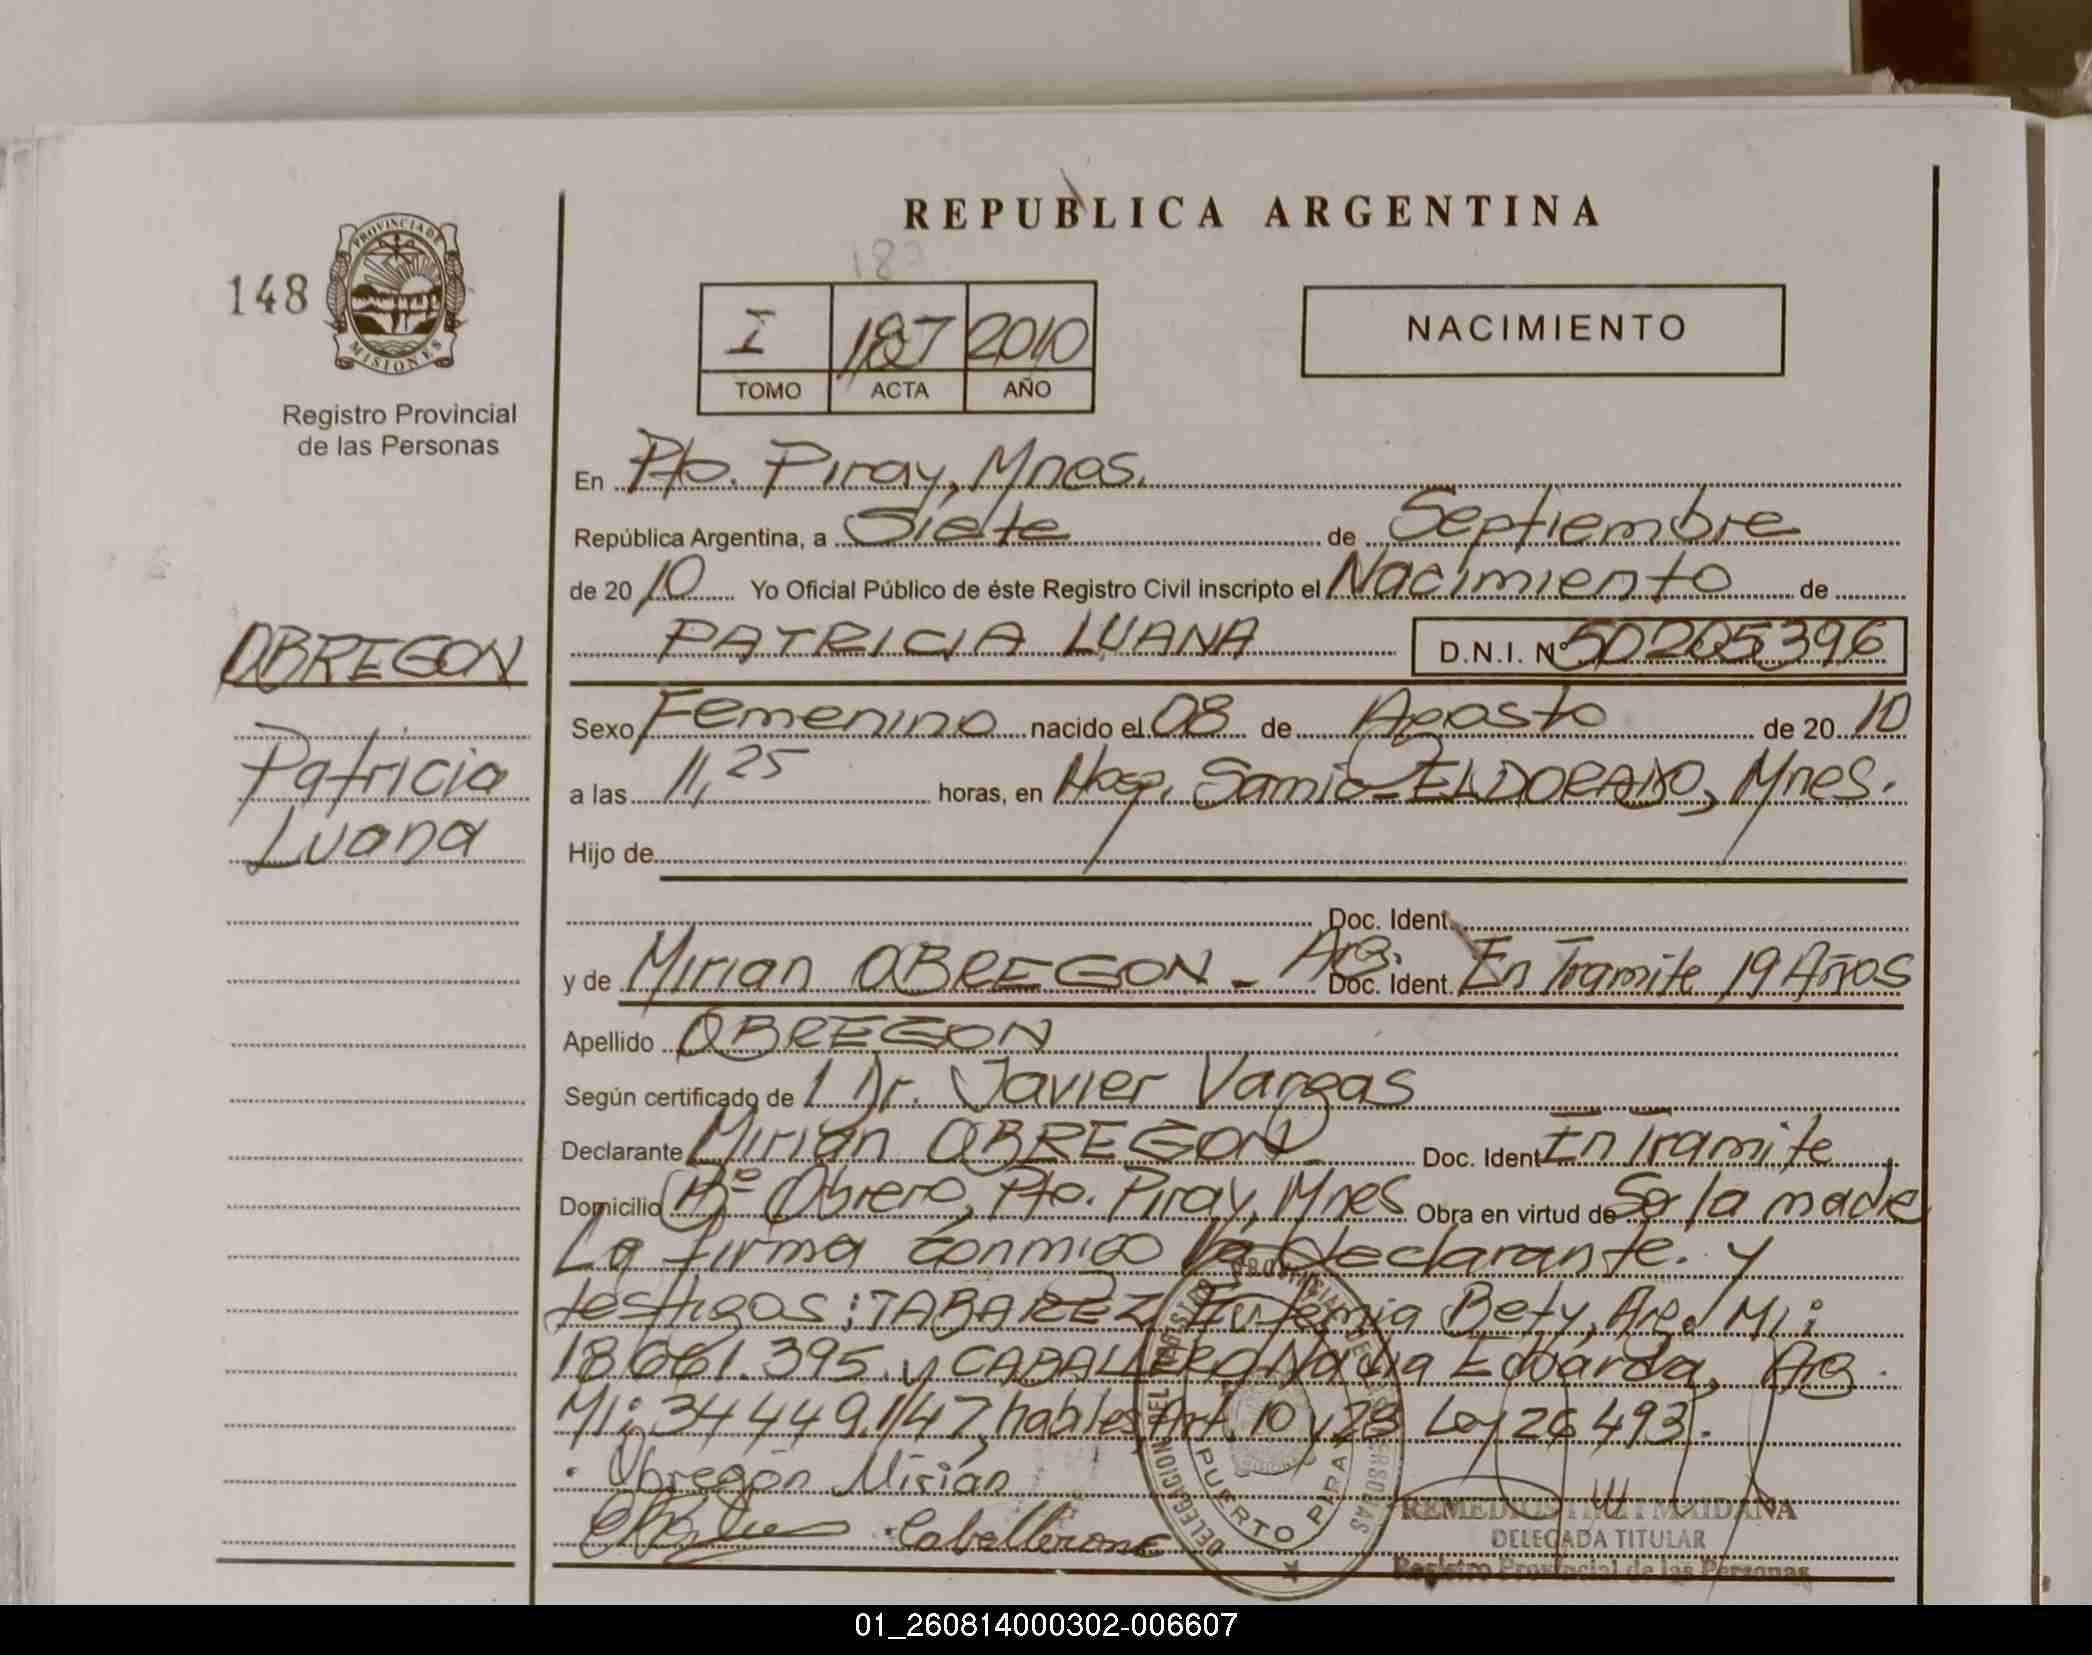 REPUBLICA ARGENTINA
148
PROVINCIA DE MISIONES
Registro Provincial
de las Personas
I 187 2010
TOMO ACTA AÑO
NACIMIENTO
En Pto. Piray, Mnes.
República Argentina, a Siete de Septiembre
de 20 10 Yo Oficial Público de éste Registro Civil inscripto el Nacimiento de
PATRICIA LUANA D.N.I. Nº 50205396
OBREGON
Patricia
Luana
Sexo Femenino nacido el 08 de Agosto de 20 10
a las 11,25 horas, en Hosp. Samic-ELDORADO, Mnes.
Hijo de
Doc. Ident.
y de Mirian OBREGON - Arg. Doc. Ident. En Tramite 19 Años
Apellido OBREGON
Según certificado de Dr. Javier Vargas
Declarante Mirian OBREGON Doc. Ident En Tramite,
Domicilio Bº Obrero, Pto. Piray, Mnes Obra en virtud de Ser la madre
La firma conmigo la declarante. y
testigos: TABAREZ Eufemia Bety, Arg. MI:
18.661.395 y CABALLERO Eduarda, Arg.
MI: 34449.147, hables, Art. 10 y 28 Ley 26493.
Obregón Mirian
PUERTO PIRAY
DELEGADA TITULAR
Registro Provincial de las Personas
01_260814000302-006607